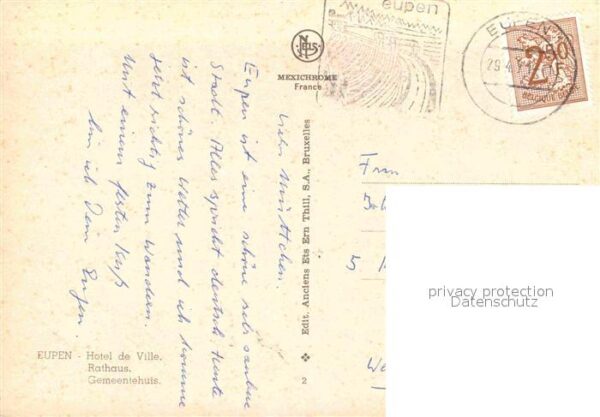 eupen
EUPEN
29.4
2.50
BELGIQUE
NELS
MEXICHROME
France
Edit. Anciens Ets Ern Thill, S.A., Bruxelles
Eupen ist eine schöne sehr saubere
Stadt. Alles spricht deutsch. Heute
ist schönes Wetter und ich komme
jetzt richtig zum Wandern.
Mit einem festen Kuß
bin ich Dein Eugen.
EUPEN - Hotel de Ville.
Rathaus.
Gemeentehuis.
2
Frau
5
privacy protection
Datenschutz